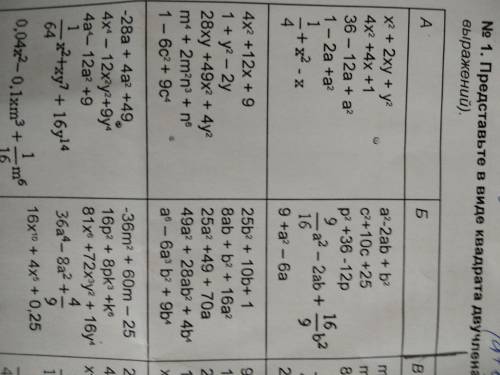 № 1. Представьте в виде квадрата двучлена
выражений).
А Б В
x² + 2xy + y²
4x² +4x +1
36 – 12a + a²
1 – 2a +a²
1/4 + x² - x
a²-2ab + b²
c²+10c +25
p² +36 -12p
9/16 a² – 2ab + 16/9 b²
9 +a² – 6a
4x² +12x + 9
1 + y² – 2y
28xy +49x² + 4y²
m⁴ + 2m²n³ + n⁶
1 – 6c² + 9c⁴
25b² + 10b+ 1
8ab + b² + 16a²
25a² +49 + 70a
49a² + 28ab² + 4b⁴
a⁶ – 6a³ b² + 9b⁴
-28a + 4a² +49
4x⁴ – 12x²y²+9y⁴
4a⁴ – 12a² +9
1/64 x²+xy⁷ + 16y¹⁴
0,04x² – 0,1xm³ + 1/16 m⁶
-36m² + 60m – 25
16p² + 8pk³ +k⁶
81x⁶ +72x³y² + 16y⁴
36a⁴ – 8a² + 4/9
16x¹⁰ + 4x⁵ + 0,25